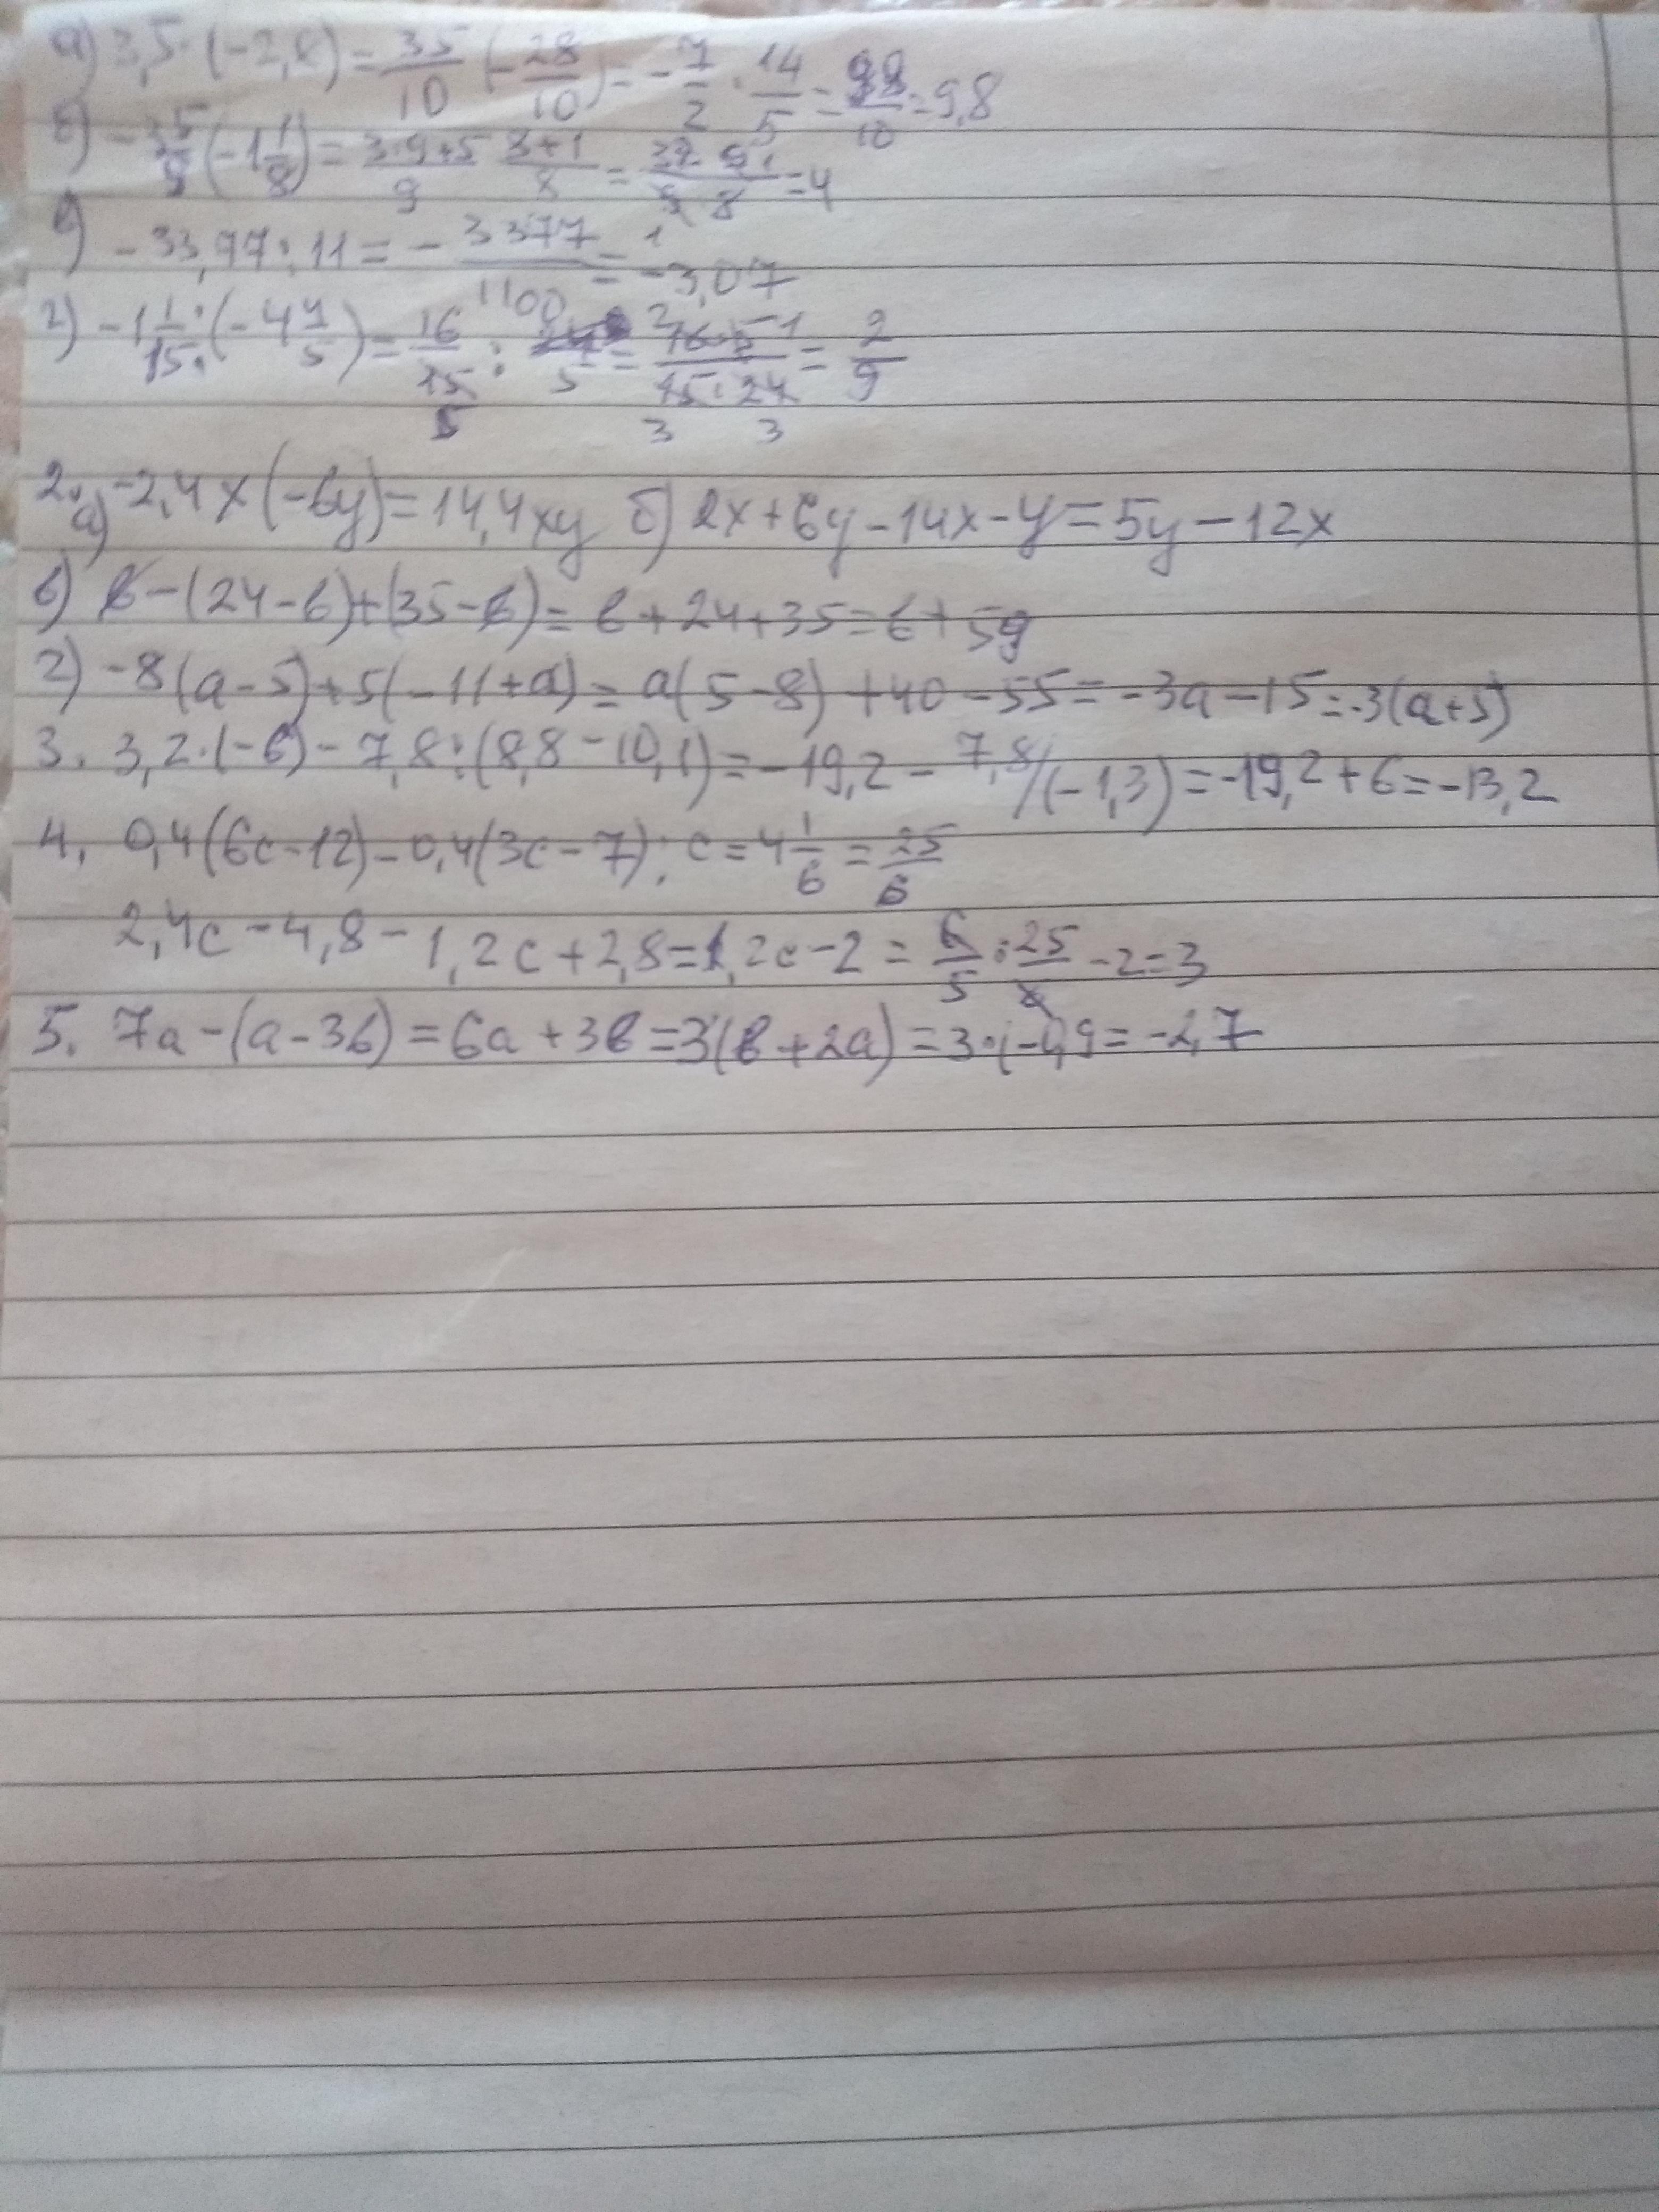 а) 3,5·(-2,8)=35/10(-28/10)=-7/2·14/5=98/10=9,8
б) -3 5/9(-1 1/8)=(3·9+5)/9 (8+1)/8=(32·9)/(9·8)=4
в) -33,77:11=-3377/1100=-3,07
г) -1 1/15:(-4 4/5)=16/15:24/5=(16·5)/(15·24)=2/9
2. а) -2,4x(-6y)=14,4xy б) 2x+6y-14x-y=5y-12x
в) в-(24-в)+(35-в)=в+24+35=в+59
г) -8(a-5)+5(-11+a)=a(5-8)+40-55=-3a-15=-3(a+5)
3. 3,2·(-6)-7,8:(8,8-10,1)=-19,2-7,8/(-1,3)=-19,2+6=-13,2
4. 0,4(6c-12)-0,4(3c-7); c=4 1/6=25/6
2,4c-4,8-1,2c+2,8=1,2c-2=6/5·25/6-2=3
5. 7a-(a-3в)=6a+3в=3(в+2a)=3·(-0,9=-2,7